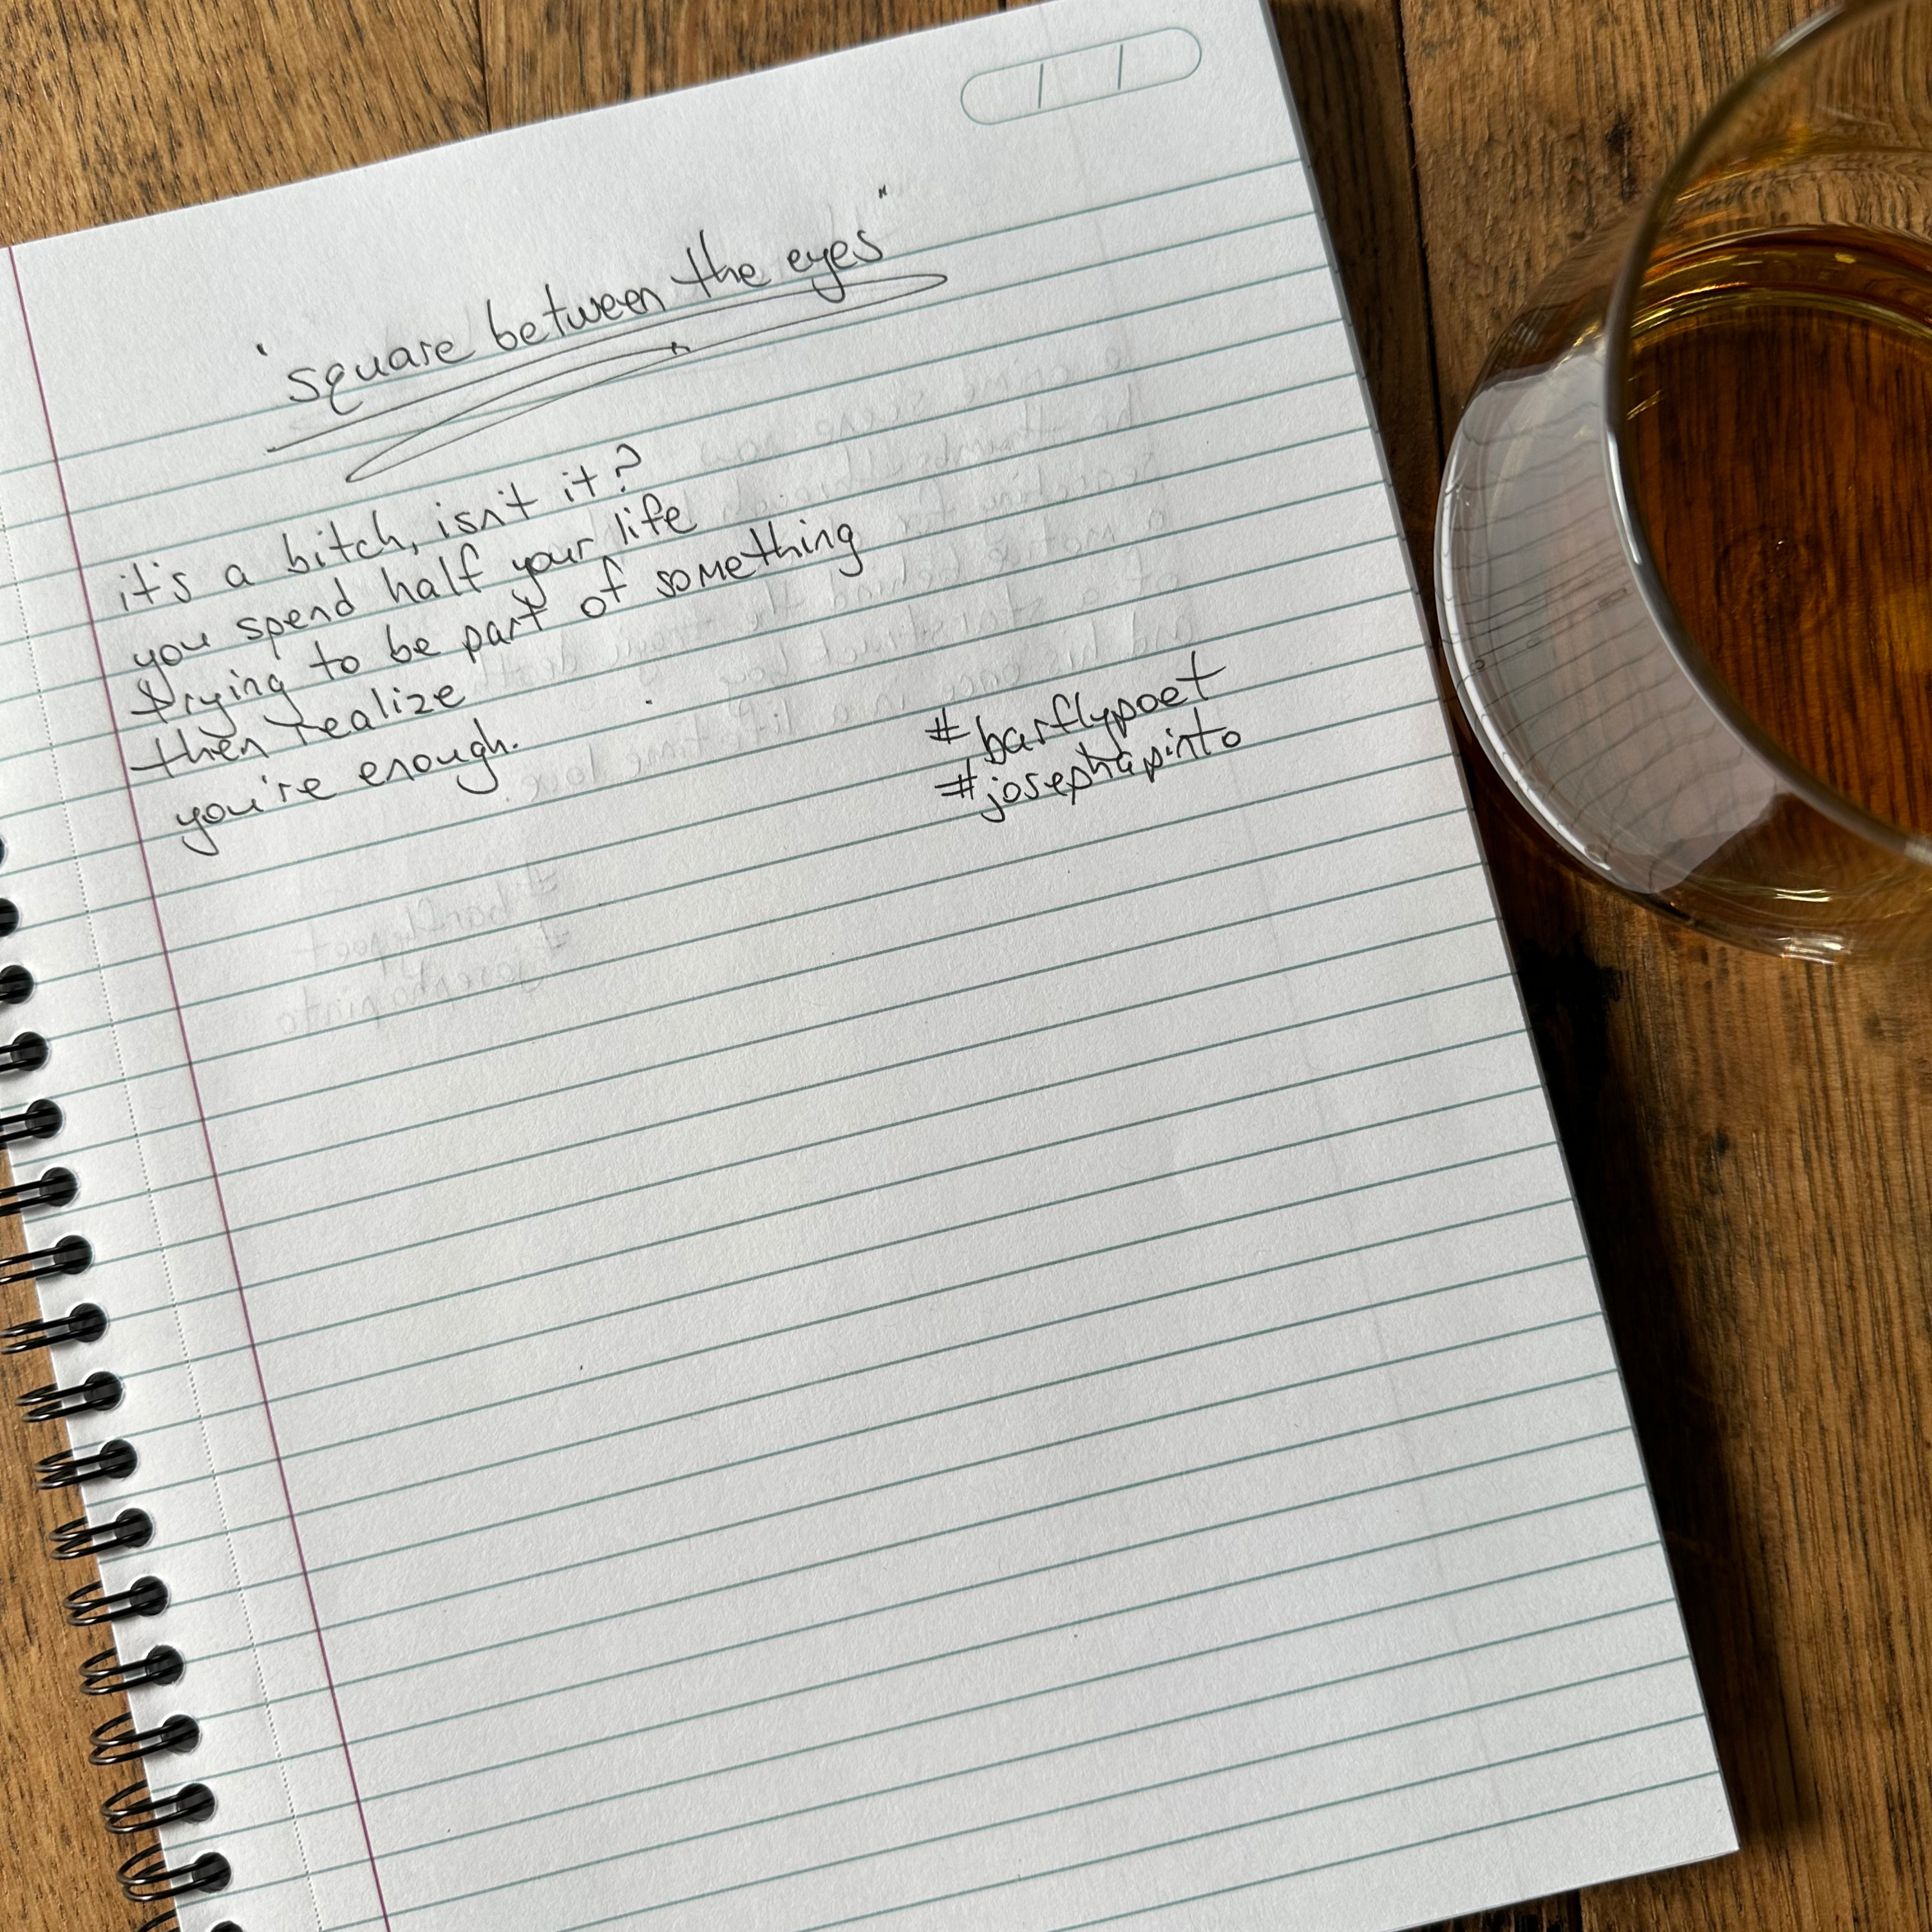 "square between the eyes"
it's a bitch, isn't it?
you spend half your life
trying to be part of something
then realize
you're enough.
#barflypoet
#josephapinto